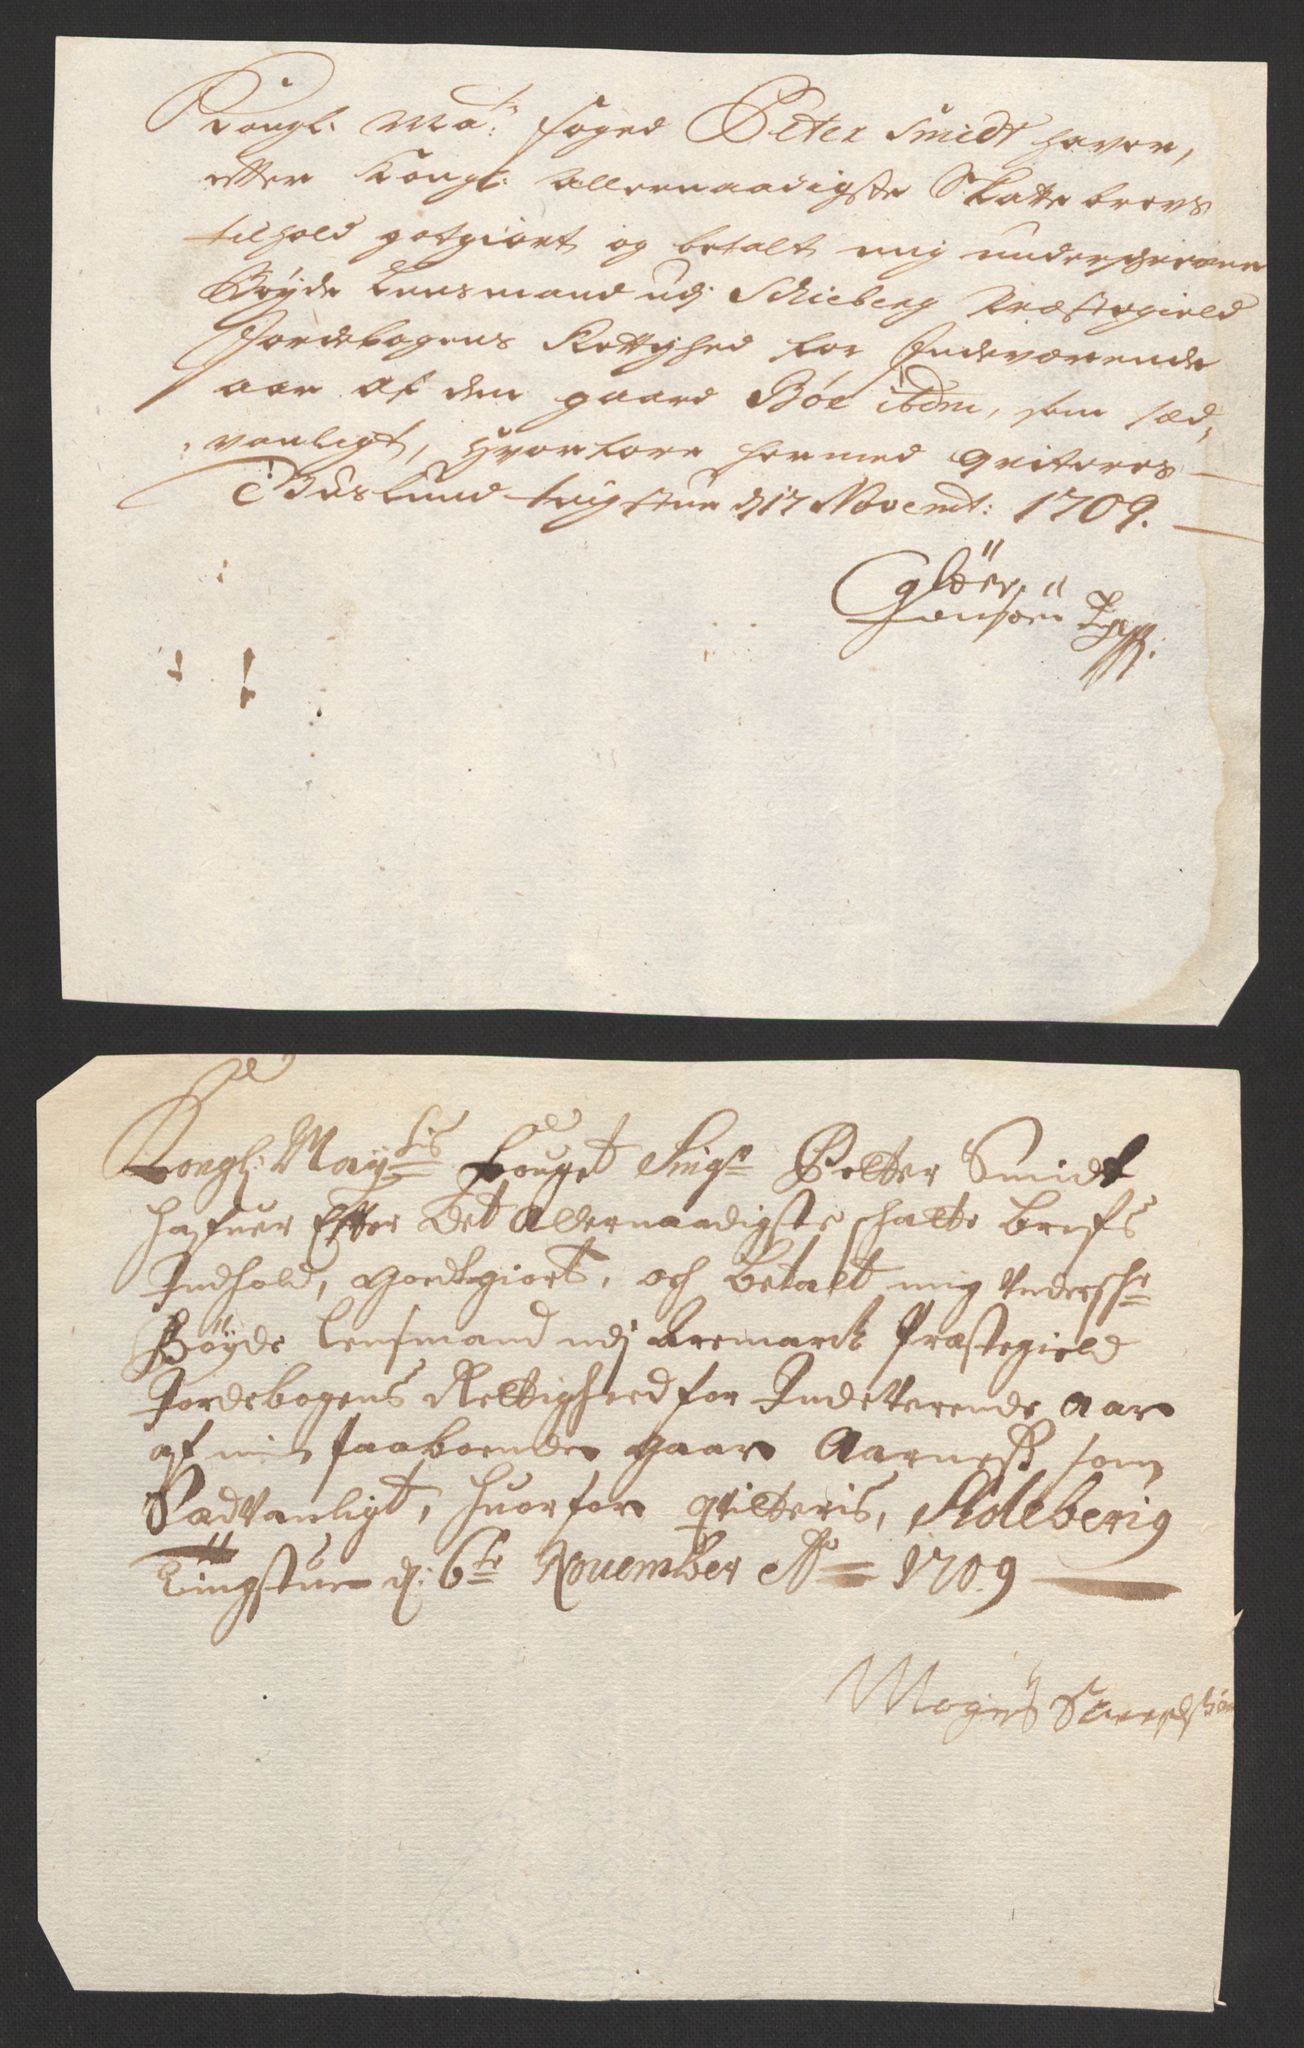 Kongl: Ma:t foged Peter Smidt haver,
efter Kongl: allernaadigste Skatte brevs
tilhold godtgiort og betalt mig underskrevne
Bøyde Lensmand udj Schieberg Præstegield
Jordebogens Rettighed for Indeværende
aar af den gaard Böe ibdm, som sæd,
vanligt, hvorfore hermed qviteres
Buslund tingstue d 17 Novembr: 1709.
Glöer
Jensön
Kongl: Mayts Fouget Sigr Petter Smidt
hafuer Efter Det Allernaadigste schatte brefs
Indhold, godtgiort, och Betalt mig Underschr
Böyde lensmand udj Aremarck Præstegield
Jordebogens Rettighed for Indeverende Aar
af min paaboende gaar Aarness, som
Sædvanligt, huorfor qvitteris, Sideberig
Tingstue d: 6te Nouember Ao 1709
Mogens